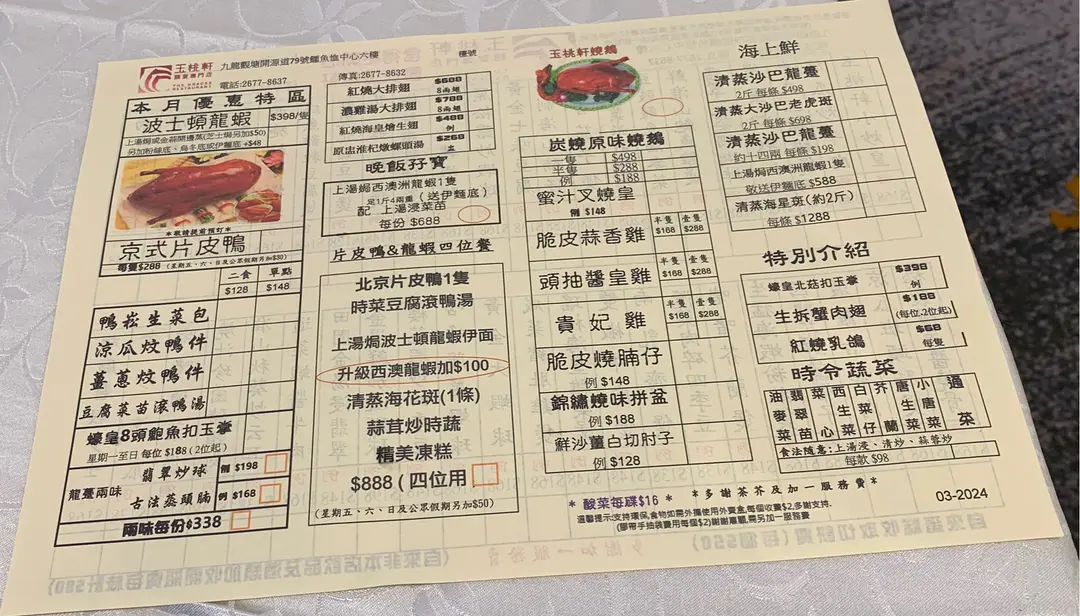 玉桃軒
九龍觀塘開源道79號鱷魚恤中心六樓
電話:2677-8637
傳真:2677-8632
檯號
本月優惠特區
波士頓龍蝦 $398/隻
上湯焗或金蒜開邊蒸(芝士焗另加$50)
另加粉絲底、烏冬底或伊麵底 +$48
*敬請提前預訂*
京式片皮鴨
每隻$288 (星期五、六、日及公眾假期另加$30)
二食 單點
$128 $148
鴨崧生菜包
涼瓜炆鴨件
薑蔥炆鴨件
豆腐菜苗滾鴨湯
蠔皇8頭鮑魚扣玉掌
星期一至日 每位 $188 (2位起)
龍躉兩味
翡翠炒球 例 $198
古法蒸頭腩 例 $168
兩味每份$338
紅燒大排翅 $688 8兩翅
濃雞湯大排翅 $788 8兩翅
紅燒海皇燴生翅 $488 例
原盅淮杞燉螺頭湯 $268
晚飯孖寶
上湯焗西澳洲龍蝦1隻
足1斤4兩重 (送伊麵底)
配 上湯浸菜苗
每份 $688
片皮鴨&龍蝦四位餐
北京片皮鴨1隻
時菜豆腐滾鴨湯
上湯焗波士頓龍蝦伊面
升級西澳龍蝦加$100
清蒸海花斑(1條)
蒜茸炒時蔬
精美凍糕
$888 (四位用)
(星期五、六、日及公眾假期另加$50)
玉桃軒燒鵝
炭燒原味燒鵝
一隻 $498
半隻 $288
例 $188
蜜汁叉燒皇
例 $148
脆皮蒜香雞 半隻 $168 壹隻 $288
頭抽醬皇雞 半隻 $168 壹隻 $288
貴妃雞 半隻 $168 壹隻 $288
脆皮燒腩仔
例 $148
錦繡燒味拼盆
例 $188
鮮沙薑白切肘子
例 $128
海上鮮
清蒸沙巴龍躉
2斤 每條 $498
清蒸大沙巴老虎斑
2斤 每條 $698
清蒸沙巴龍躉
約十四兩 每條 $198
上湯焗西澳洲龍蝦1隻
敬送伊麵底 $588
清蒸海星斑(約2斤)
每條 $1288
特別介紹
蠔皇北菇扣玉掌 $398 例
生拆蟹肉翅 $188 (每位,2位起)
紅燒乳鴿 $68 每隻
時令蔬菜
油麥菜
翡翠苗
菜心
西生菜
白菜仔
芥蘭
唐生菜
小唐菜
通菜
食法隨意:上湯浸、清炒、蒜蓉炒
每款 $98
* 酸菜每碟$16 * *多謝茶芥及加一服務費*
溫馨提示:支持環保,食物如需外攜使用外賣盒,每個收費$2,多謝支持.
(膠帶手抽袋費用每個$2)謝謝惠顧,需另加一服務費
03-2024